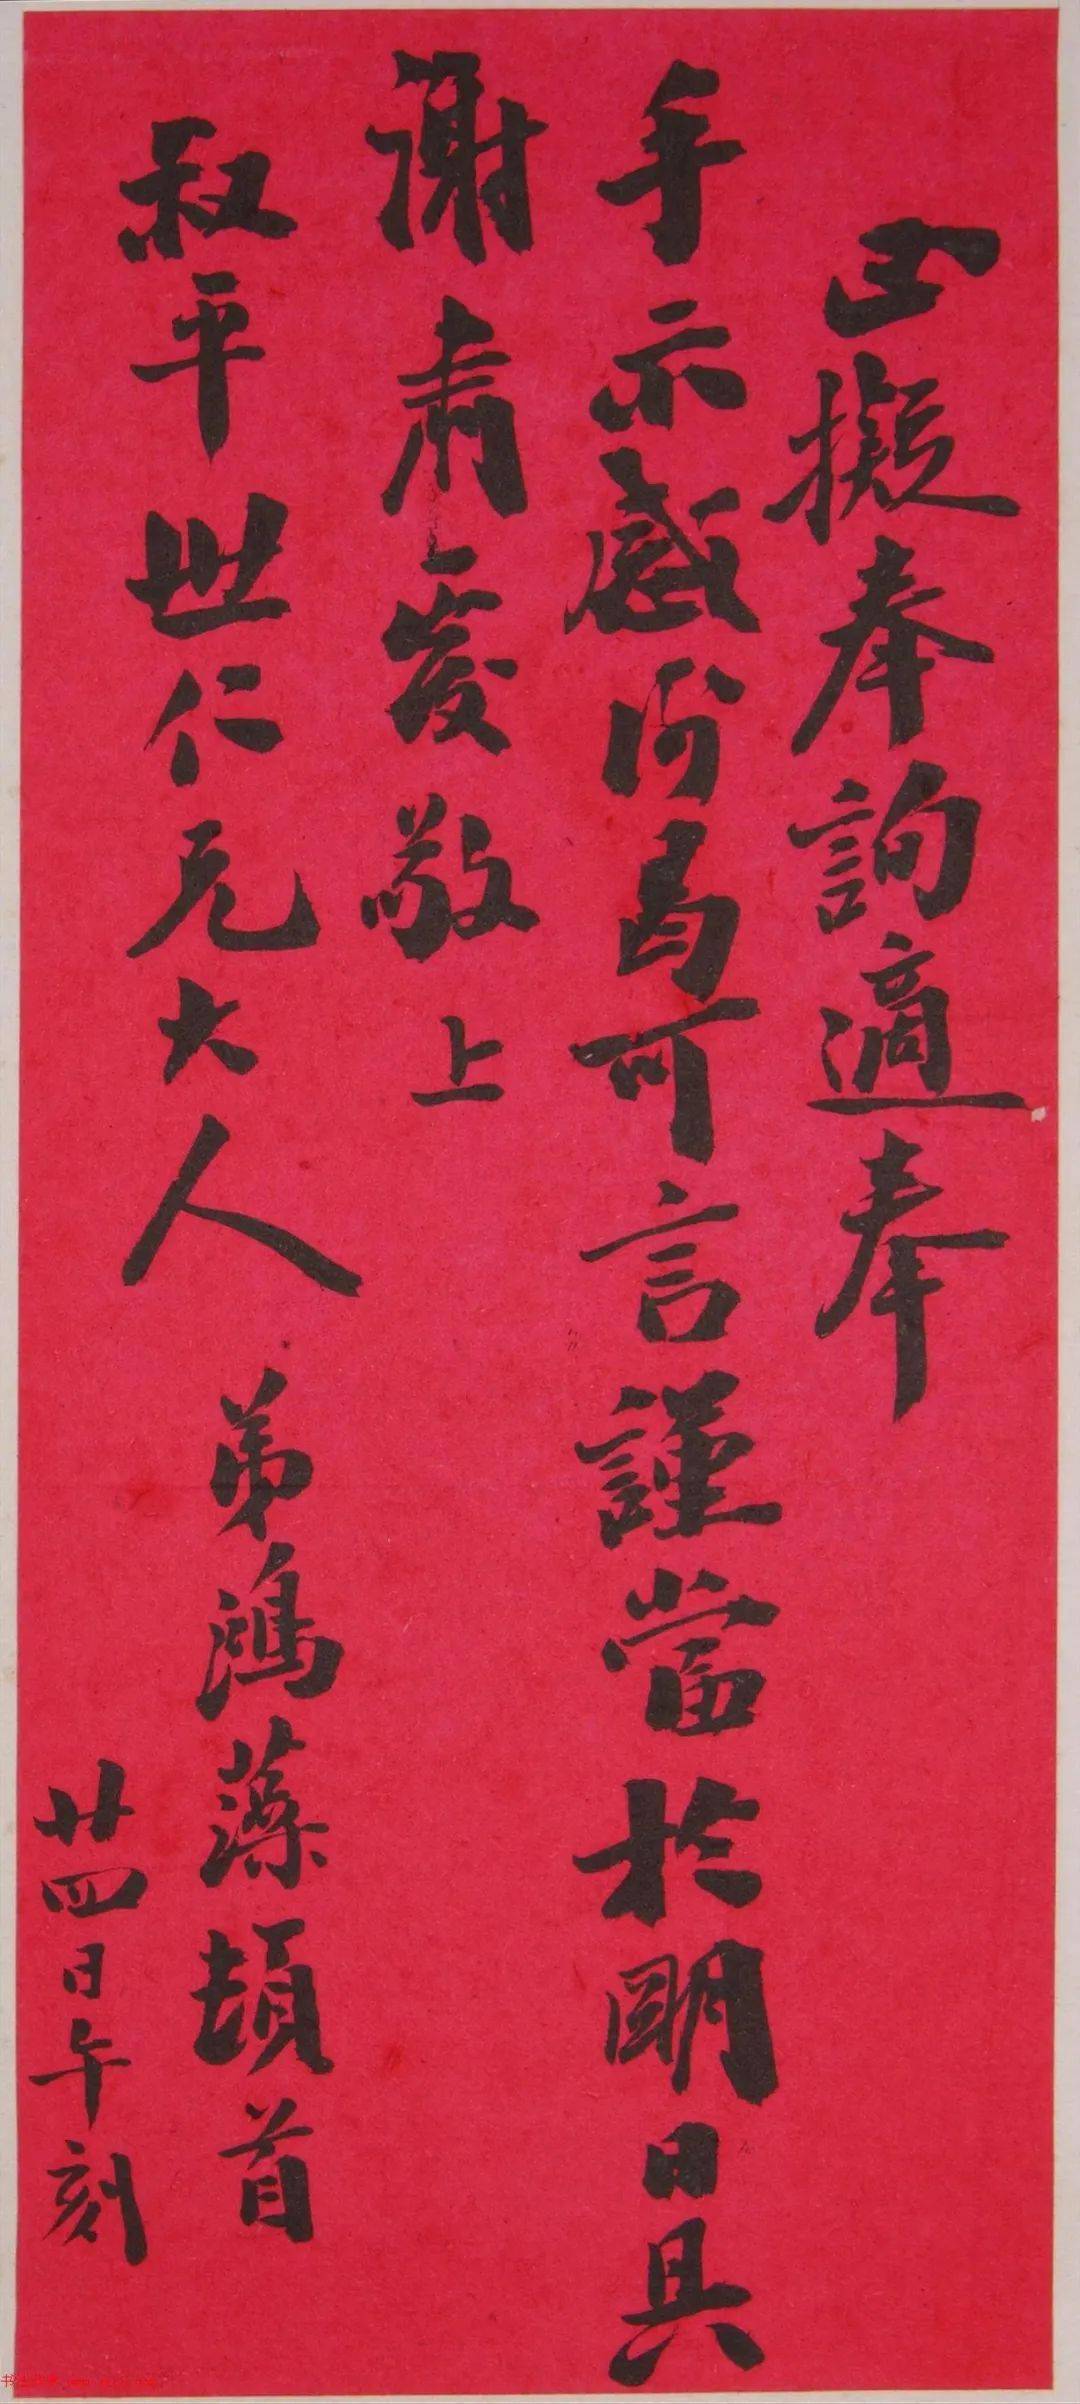 正擬奉詢適奉
手示感泐曷可言謹當於明日具
謝肅覆敬上
叔平世仁兄大人
弟鴻藻頓首
廿四日午刻